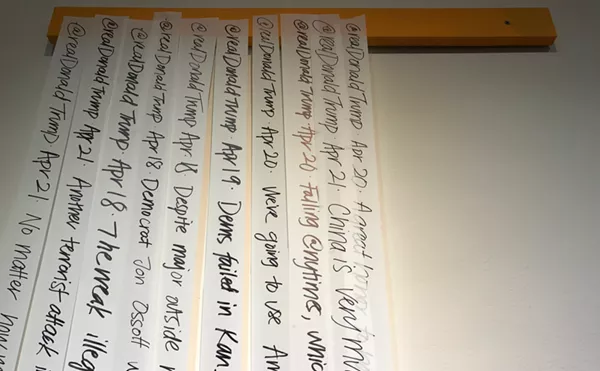 @realDonaldTrump Apr 21. No matter how
@realDonaldTrump Apr 21. Another terrorist attack i
@realDonaldTrump. Apr 18. The weak illeg
@realDonaldTrump Apr 18. Democrat Jon Ossoff w
@realDonaldTrump Apr 18 Despite major outside r
@realDonaldTrump. Apr 19. Dems failed in Kan
@realDonaldTrump. Apr 20. We're going to use Am
@realDonaldTrump Apr 20 Failing @nytimes, whic
@realDonaldTrump Apr 21. China is very mu
@realDonaldTrump Apr 20. A great